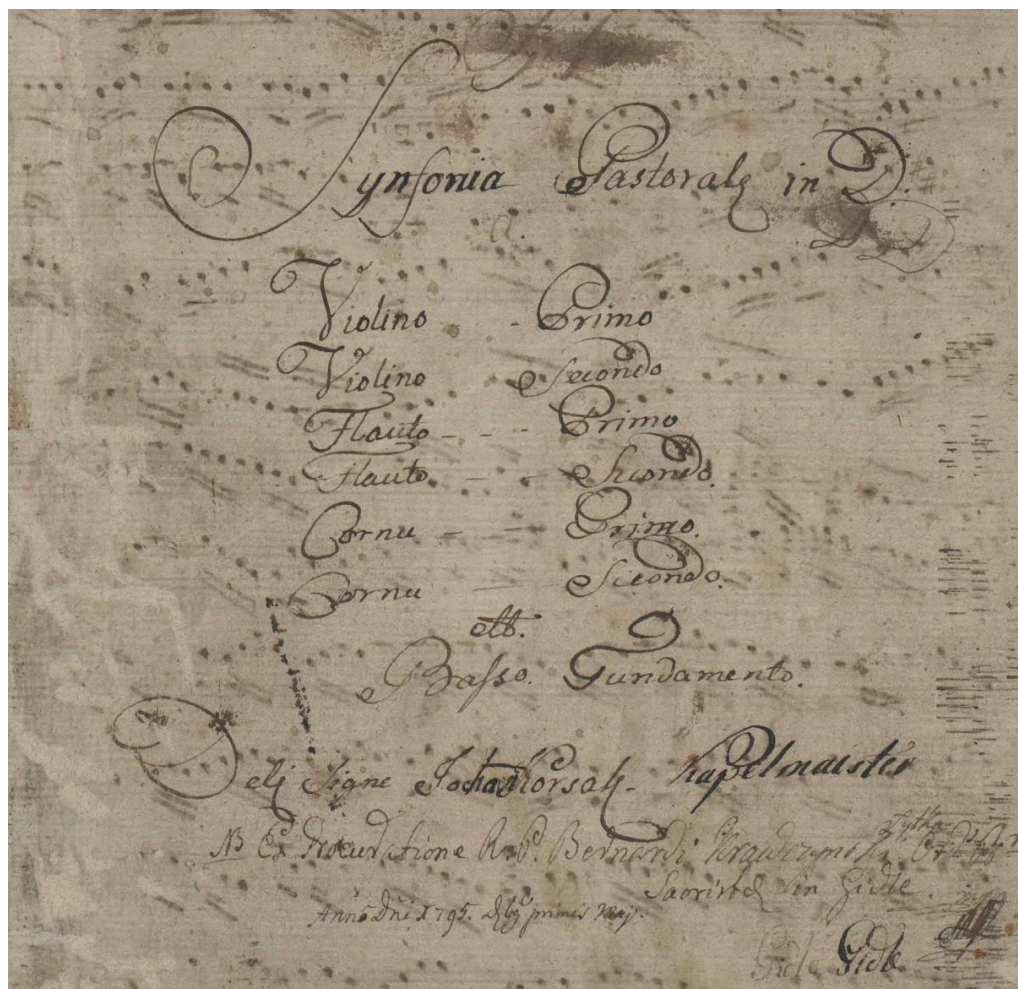 Synfonia Pastorale in D.#
a.
Violino - Primo
Violino Secondo
Flauto - - - Primo
Flauto - - Secondo.
Cornu - - Primo.
Cornu - Secondo.
ett.
Basso. Fundamento.
Delj Signe Johan Korsak. Kapelmaister
NB Ex Procuratione R. P. Bernardi
Sacristae in Gidle
Anno Dni 1795. primis Maij.
Gidle Gidle